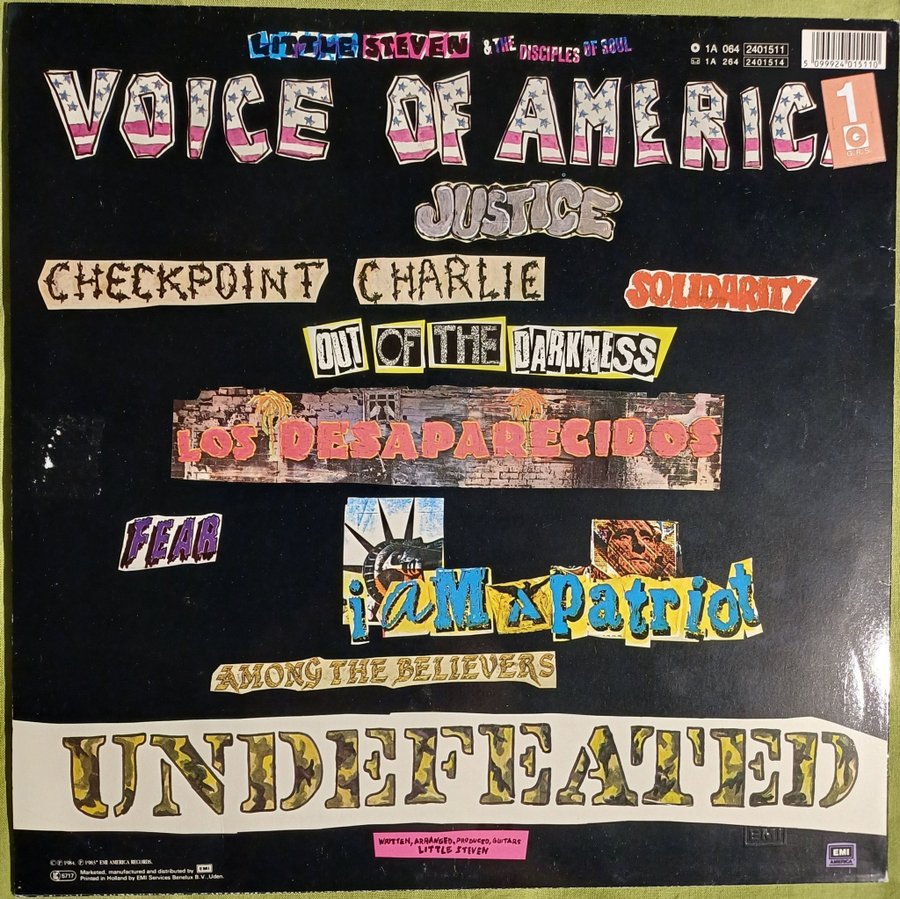 LITTLE STEVEN & THE DISCIPLES OF SOUL
1A 064 2401511
1A 264 2401514
5 099924 015110
VOICE OF AMERIC
1
G.R.S.
JUSTICE
CHECKPOINT CHARLIE
SOLIDARITY
OUT OF THE DARKNESS
LOS DESAPARECIDOS
FEAR
i aM A Patriot
AMONG THE BELIEVERS
UNDEFEATED
EMI
WRITTEN, ARRANGED, PRODUCED, GUITARS
LITTLE STEVEN
©Ⓟ 1984, Ⓟ 1983* EMI AMERICA RECORDS.
5717
Marketed, manufactured and distributed by EMI
Printed in Holland by EMI Services Benelux B.V., Uden.
EMI
AMERICA